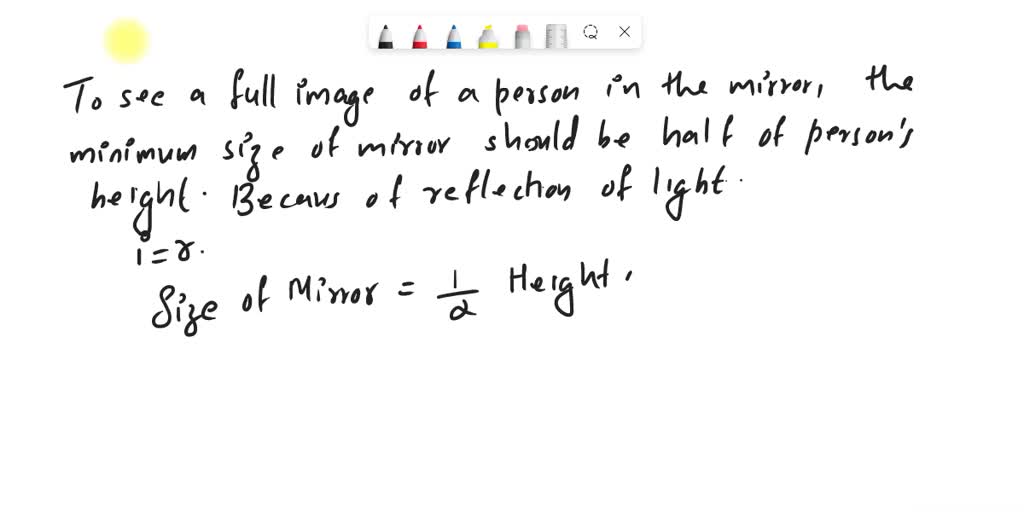 To see a full image of a person in the mirror, the
minimum size of mirror should be half of person's
height. Becaus of reflection of light.
i = r.
Size of Mirror = 1/2 Height.